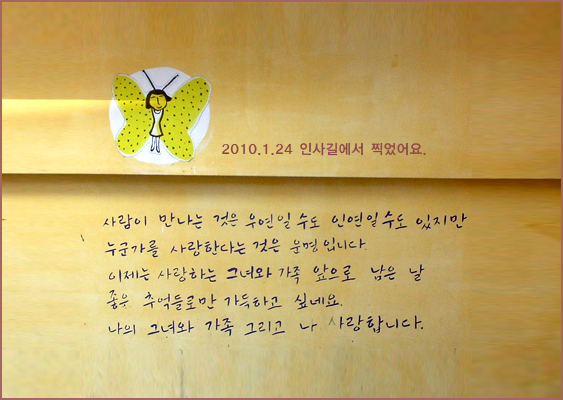 2010.1.24 인사길에서 찍었어요.
사람이 만나는 것은 우연일 수도 인연일 수도 있지만
누군가를 사랑한다는 것은 운명입니다.
이제는 사랑하는 그녀와 가족 앞으로 남은 날
좋은 추억들로만 가득하고 싶네요.
나의 그녀와 가족 그리고 나 사랑합니다.